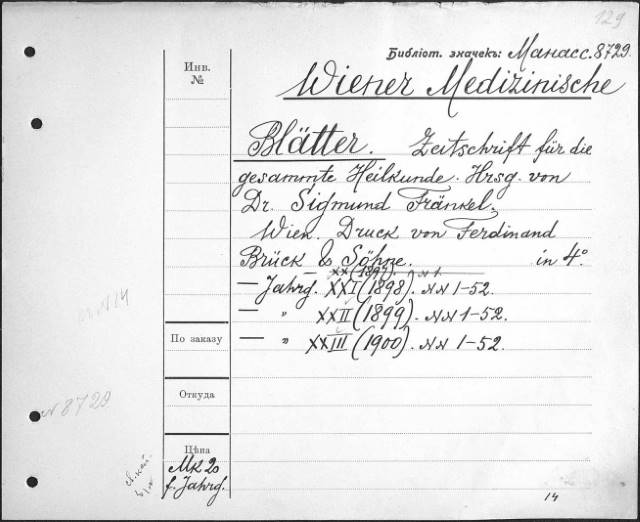 129
Библіот. значекъ: Манасс. 8729.
Wiener Medizinische
Blätter. Zeitschrift für die
gesammte Heilkunde. Hrsg. von
Dr. Sigmund Fränkel.
Wien. Druck von Ferdinand
Brück & Söhne. in 4°
— XX (1897). N 1 —
— Jahrg. XXI (1898). NN 1-52.
— „ XXII (1899). NN 1-52.
— „ XXIII (1900). NN 1-52.
Инв.
№
По заказу
Откуда
Цѣна
Mk 20
f. Jahrg.
N 8729
14